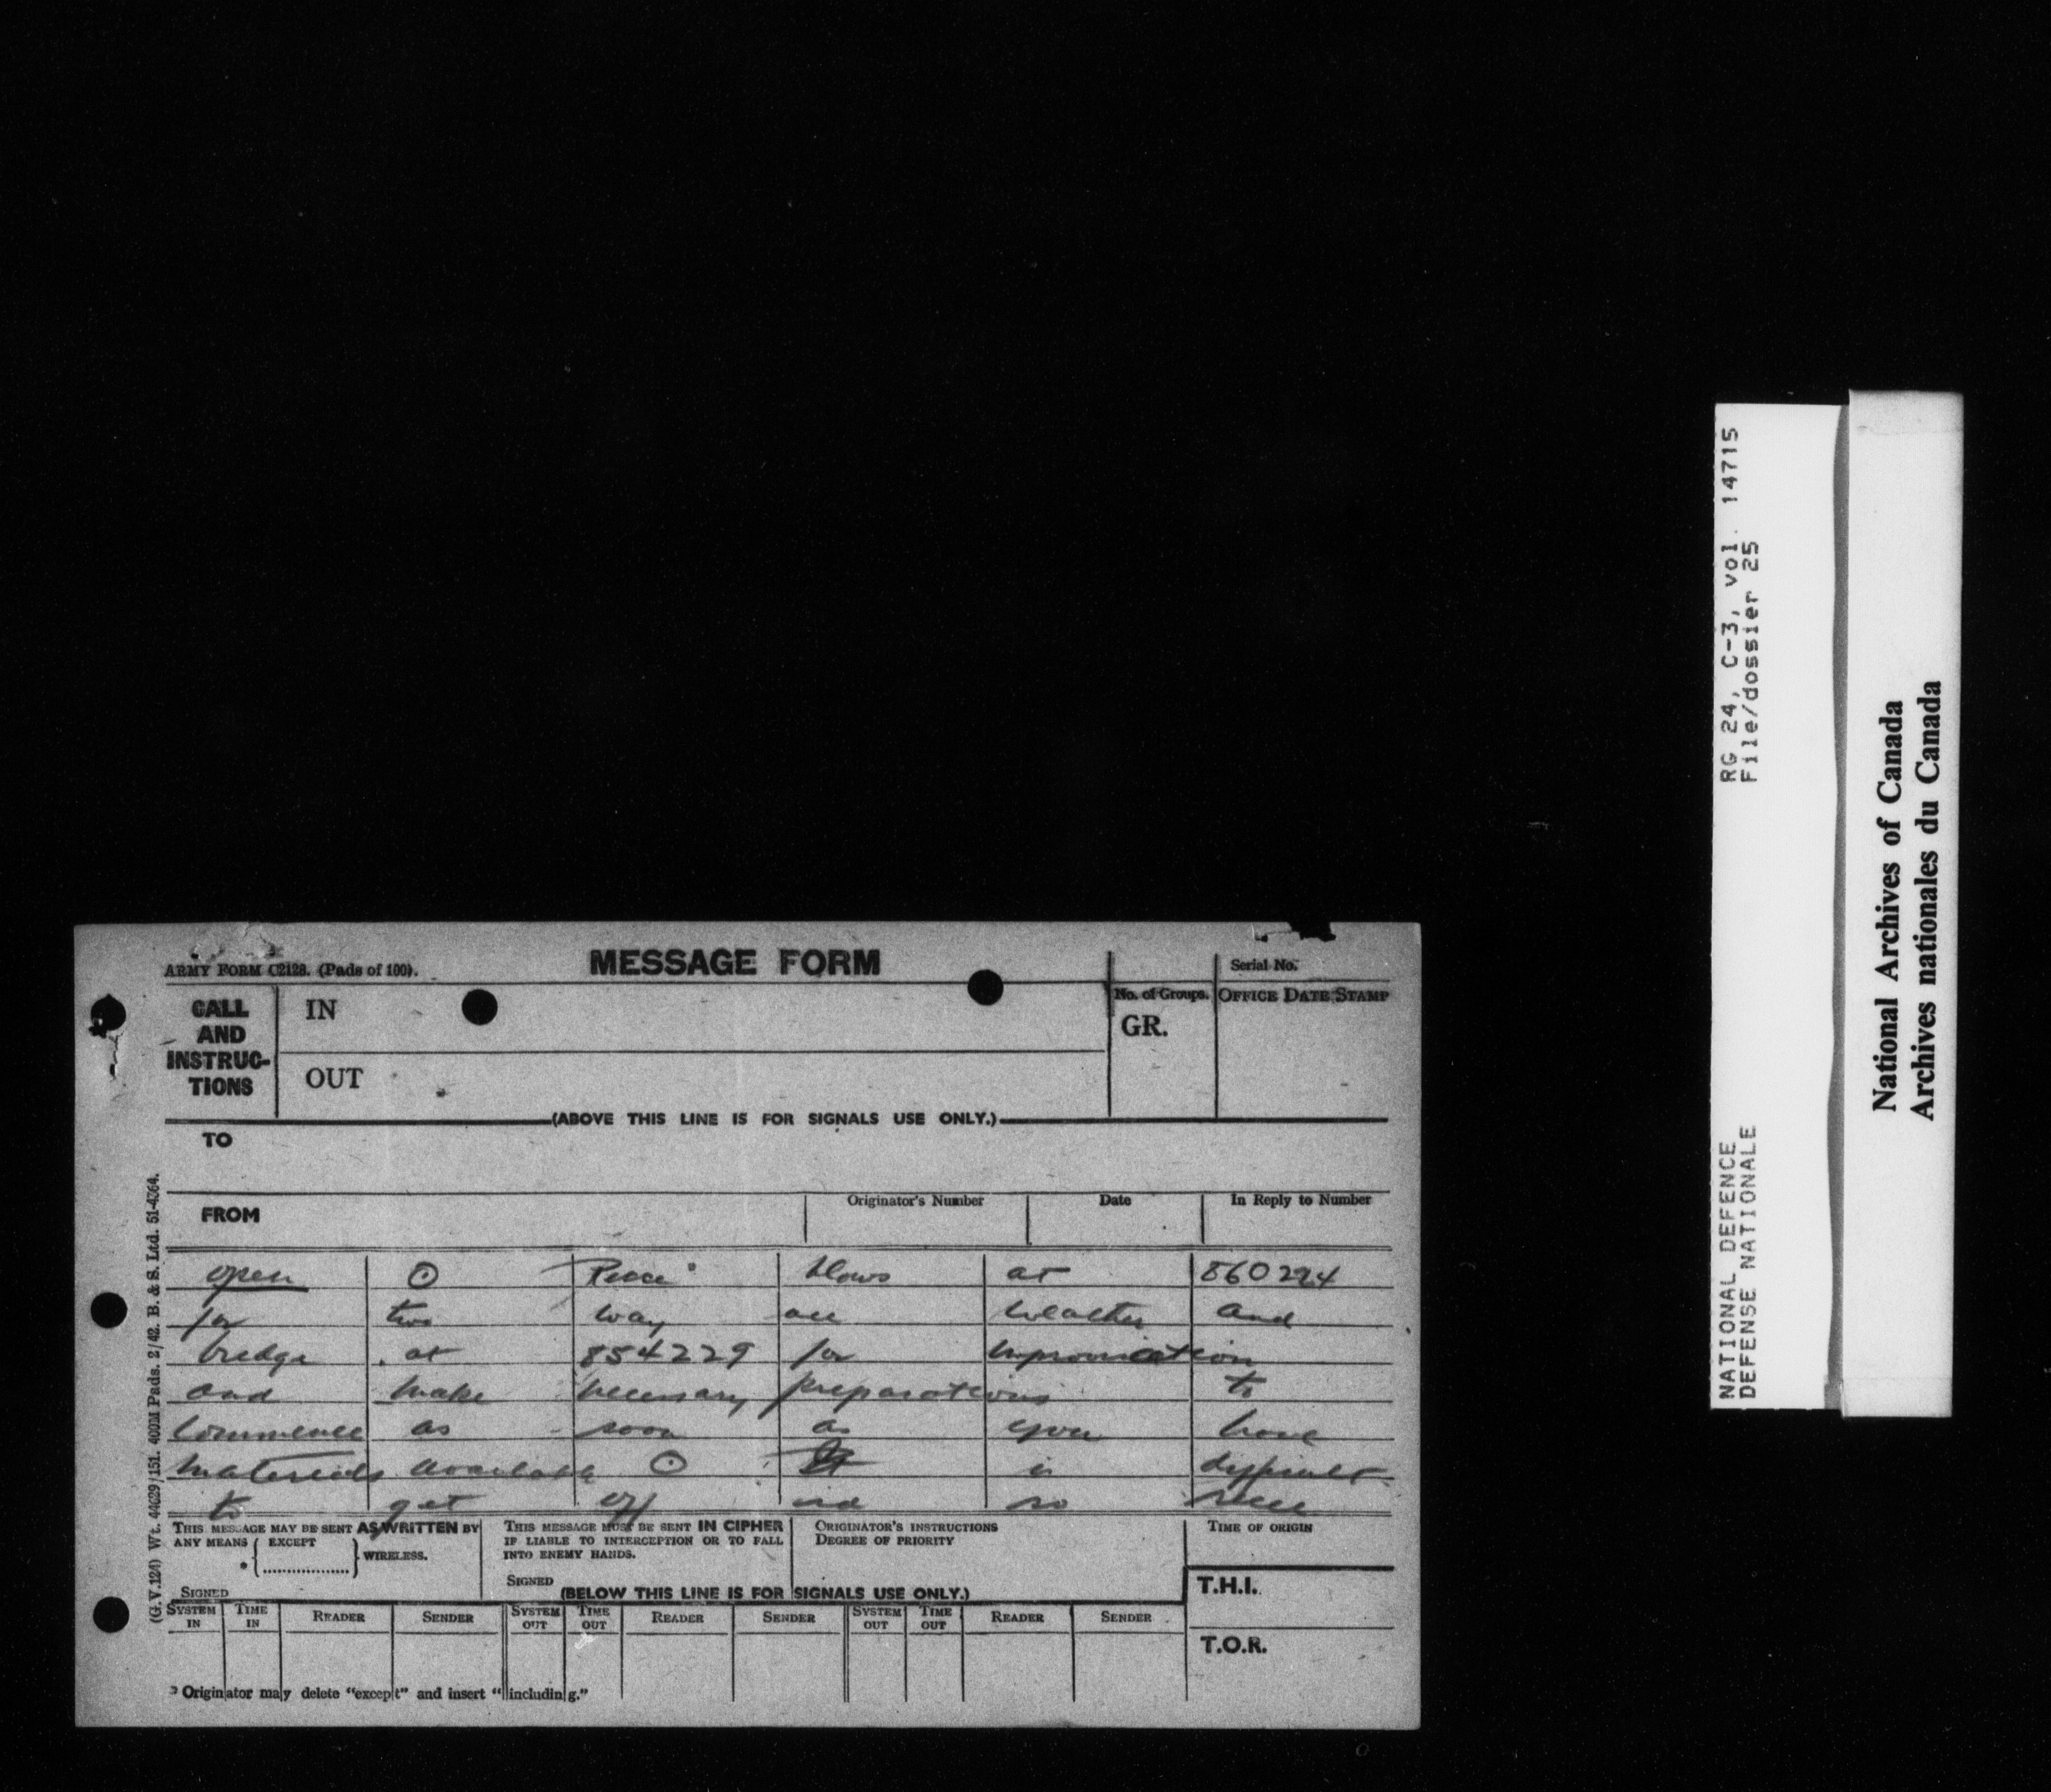 ARMY FORM C2128. (Pads of 100).
MESSAGE FORM
Serial No.
CALL AND INSTRUC- TIONS
IN
No. of Groups.
OFFICE DATE STAMP
GR.
OUT
(ABOVE THIS LINE IS FOR SIGNALS USE ONLY.)
TO
FROM
Originator's Number
Date
In Reply to Number
open ⊙ blows at 860224
for two way all weather and
bridge at 854229 for
and make necessary preparations to
commence as soon as you have
materials available ⊙ It is difficult
to get off so
THIS MESSAGE MAY BE SENT AS WRITTEN BY
ANY MEANS { EXCEPT
* { .................. } WIRELESS.
SIGNED
THIS MESSAGE MUST BE SENT IN CIPHER
IF LIABLE TO INTERCEPTION OR TO FALL
INTO ENEMY HANDS.
SIGNED
ORIGINATOR'S INSTRUCTIONS
DEGREE OF PRIORITY
TIME OF ORIGIN
(BELOW THIS LINE IS FOR SIGNALS USE ONLY.)
T.H.I.
SYSTEM IN TIME IN READER SENDER SYSTEM OUT TIME OUT READER SENDER SYSTEM OUT TIME OUT READER SENDER
T.O.R.
Originator may delete "except" and insert "including."
(G.V.124) Wt. 44629/151. 400M Pads. 2/42. B. & S. Ltd. 51-4364.
RG 24, C-3, vol. 14715
File/dossier 25
NATIONAL DEFENCE
DEFENSE NATIONALE
National Archives of Canada
Archives nationales du Canada